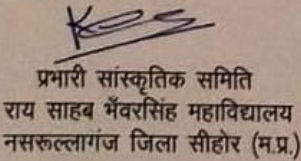 प्रभारी सांस्कृतिक समिति
राय साहब भँवरसिंह महाविद्यालय
नसरूल्लागंज जिला सीहोर (म.प्र.)